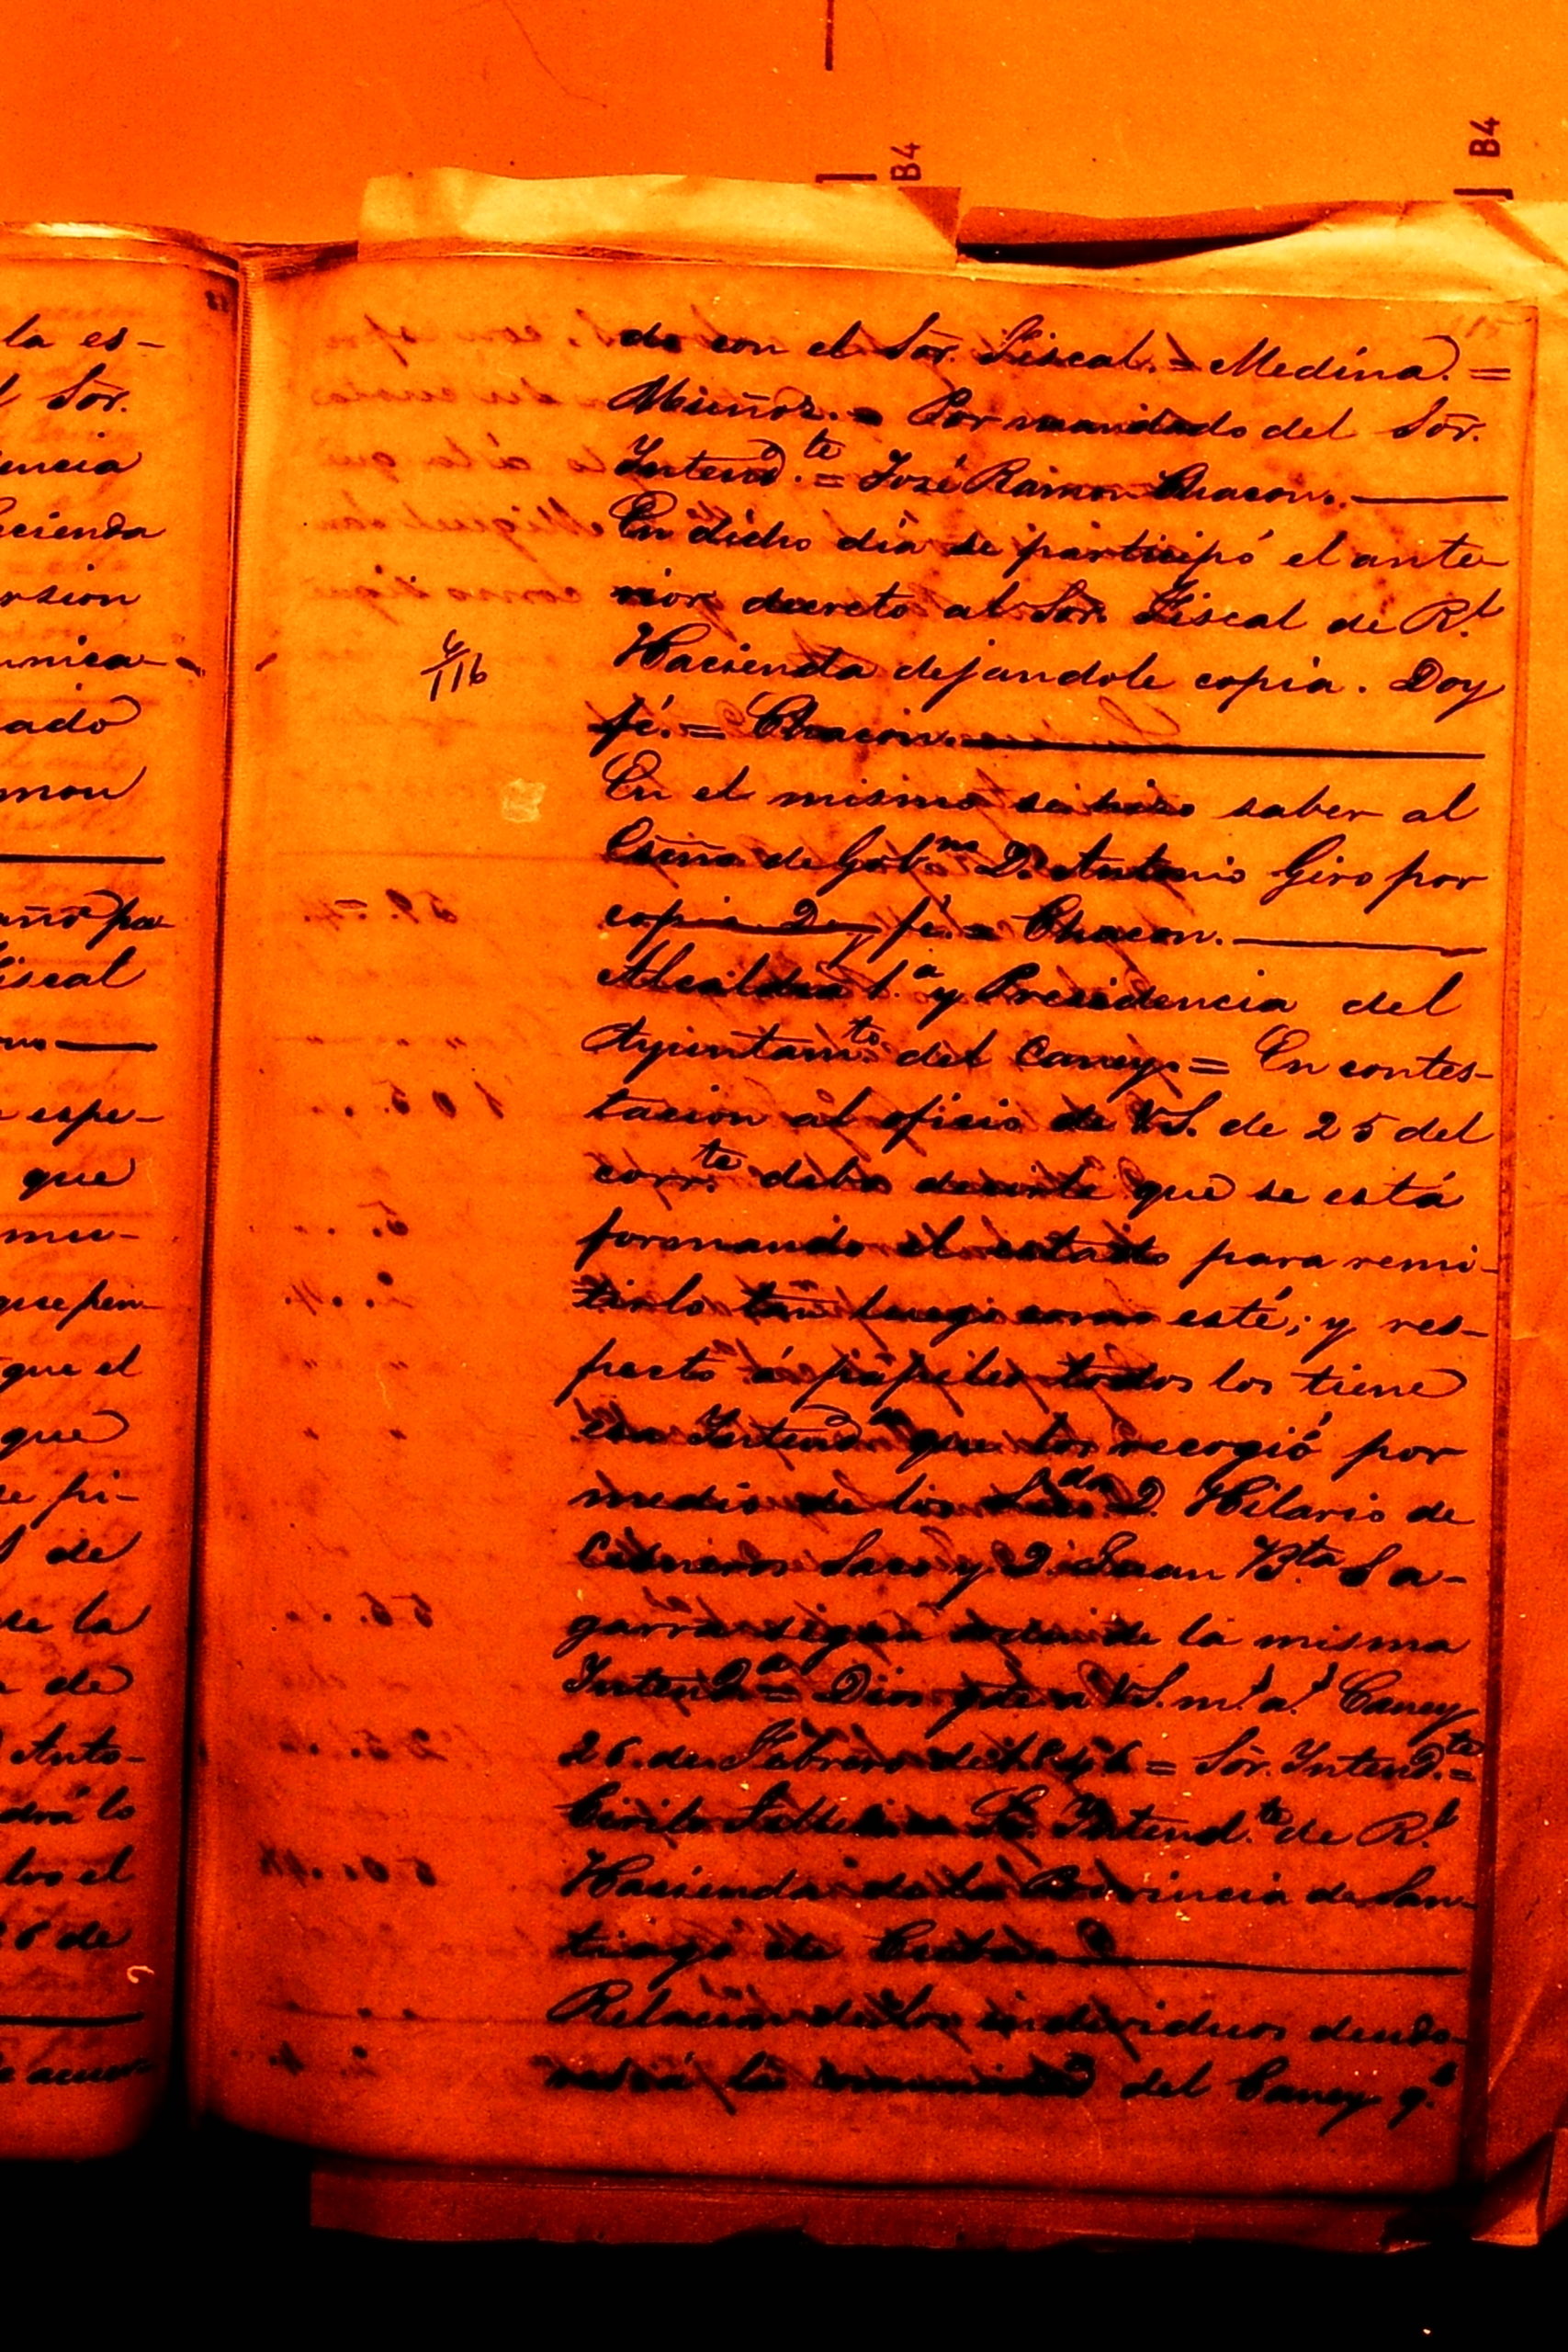 B4
B4
115
la es-
l Sõr.
encia
acienda
rsion
unica-
ado
mon
Fiscal
espe-
que
mu-
que pen-
que el
que
se pi-
de
se la
de
Anto-
drá lo
los el
26 de
do con el Sõr. Fiscal. = Medina. =
Muñoz. = Por mandado del Sõr.
Intend.te = José Ramon Chacon.
En dicho dia se participó el ante-
rior decreto al Sõr. Fiscal de R.l
Hacienda dejandole copia. Doy
fé. = Chacon.
6/116
En el mismo se hizo saber al
Escño de Gob.no D. Antonio Giro por
copia Doy fé. = Chacon.
Alcaldia 1.a y Presidencia del
Ayuntam.to del Caney. = En contes-
tacion al oficio de V.S. de 25 del
corr.te debo decirle que se está
formando el estado para remi-
tirlo tan luego como esté; y res-
pecto á papeles todos los tiene
esa Intend.a que los recogió por
medio de los L.dos D. Hilario de
Cisneros Saco y D. Juan B.ta Sa-
garra segun orden de la misma
Intend.a = Dios gue a V.S. m.s a.s Caney
26. de Febrero de 1846 = Sõr. Intend.te =
Cirilo Sõr. Intend.te de R.l
Hacienda de la Provincia de San-
tiago de Cuba
Relacion de los individuos deudo-
res á la comunidad del Caney q.e